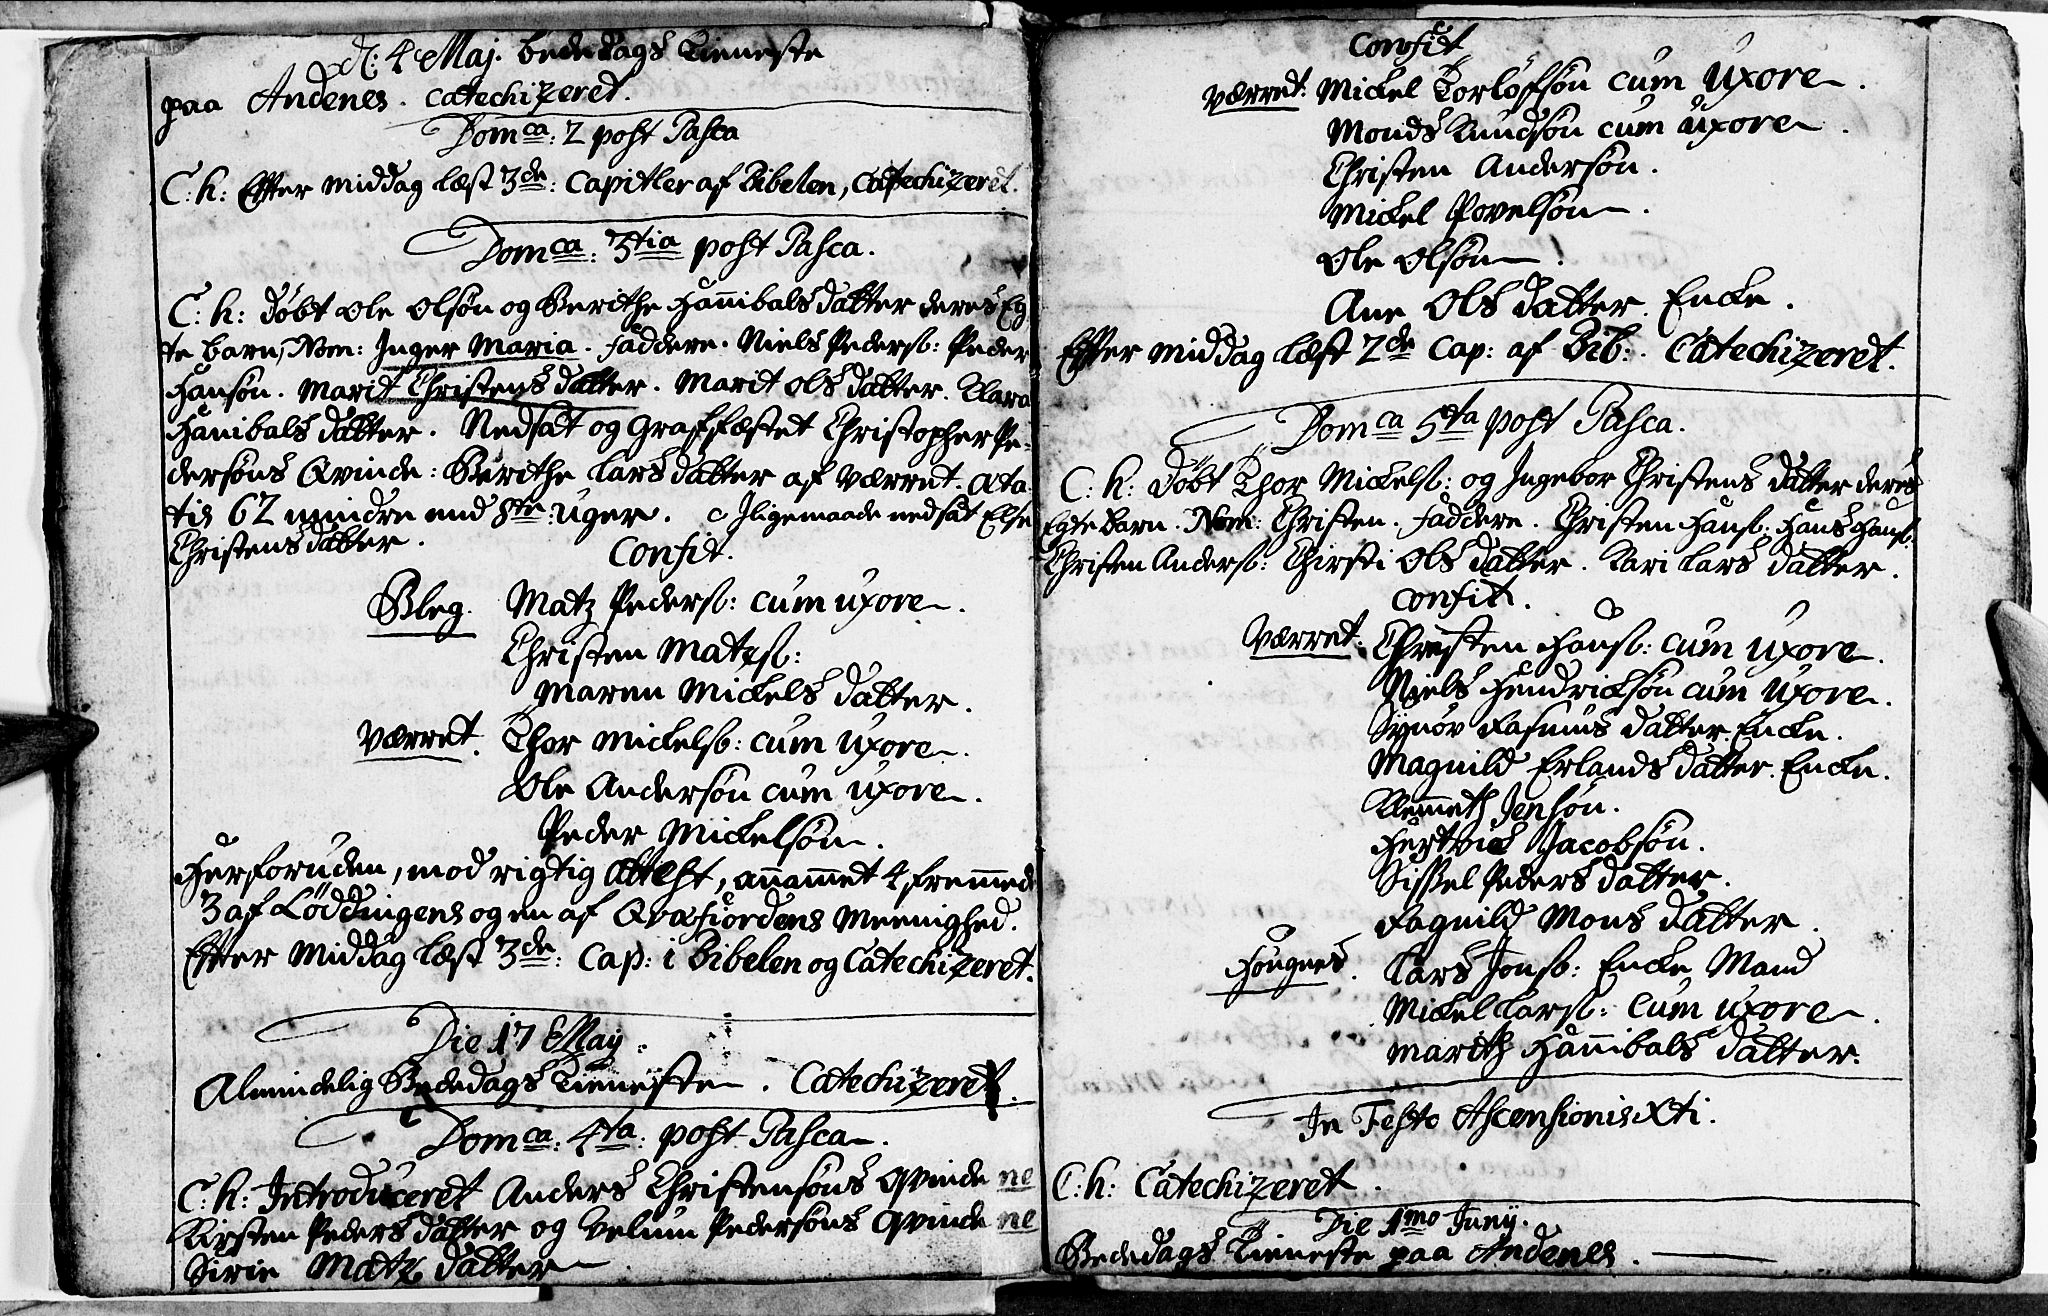 d: 4 Maj. bededags Tieneste
paa Andenes. catechizeret.
Domca: 2 post Pasca
C: h: Effter middag læst 3de: Capitler af Bibelen, Catechizeret.
Domca: 3tia post Pasca.
C: h: døbt Ole Olsøn og Berithe Hannibals datter deres Eg
te barn, Nom: Inger Maria. Faddere. Niels Peders: Peder
Hansøn. Marit Christens datter. Marit Ols datter. Klara
Hanibals datter. Nedsat og Graffæstet Christopher Pe-
dersøns Qvinde: Berithe Lars datter af Værret. Æta
tis 62 mindre end 8te: Uger. Iligemaade nedsat Else
Christens datter.
Confit.
Bleg. Matz Peders: cum uxore.
Christen Matzs:
Maren Mickels datter.
Værret. Thor Mickels: cum uxore.
Ole Andersøn cum uxore.
Peder Mickelsøn.
Herforuden, mod rigtig Attest, annammet 4 fremmede
3 af Løddingens og en af Qvæfiordens Meenighed.
Effter Middag læst 3de: Cap: i Bibelen og Catechizeret.
Die 17 Maij.
Almindelig Bededags Tienesten. Catechizeret.
Domca: 4ta: post Pasca.
C: h: Introduceret Anders Christensøns Qvinde ne
Kirsten Peders datter og Velum Pedersøns Qvinde ne
Sirie Matz datter
Confit
Værret. Mickel Torlöfsøn cum Uxore.
Monds Knudsøn cum uxore.
Christen Andersøn.
Mickel Povelsøn.
Ole Olsøn.
Ane Ols datter. Encke.
Effter middag læst 2de Cap: af Bib:. Catechizeret.
Domca 5ta post Pasca.
C: h: Døbt Thor Mickels: og Ingebor Christens datter deres
Egte barn. Nom: Christen. Faddere. Christen Hans: Hans Hans:
Christen Anders: Chirsti Ols datter. Kari Lars datter.
Confit.
Værret. Christen Hans: cum uxore.
Niels Hendricksøn cum Uxore.
Synöv Rasmus datter. Encke.
Magnild Erlands datter. Encke.
Klemmeth Jensøn.
Hertvick Jacobsøn.
Sissel Peders datter.
Ragnild Mons datter.
Hougnes. Lars Jons: Encke Mand
Mickel Lars: cum uxore.
Marith Hannibals datter.
In Festo Ascensionis Xti.
C: h: Catechizeret.
Die 1mo Junij.
Bededags Tieneste paa Andenes.